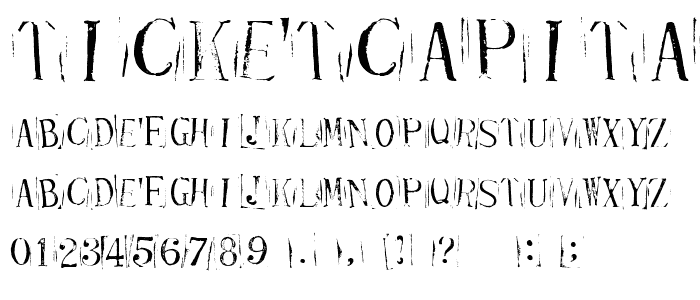 TICKETCAPITA
ABCDEFGHIJKLMNOPQRSTUVWXYZ
ABCDEFGHIJKLMNOPQRSTUVWXYZ
0123456789 . , ! ? : ;